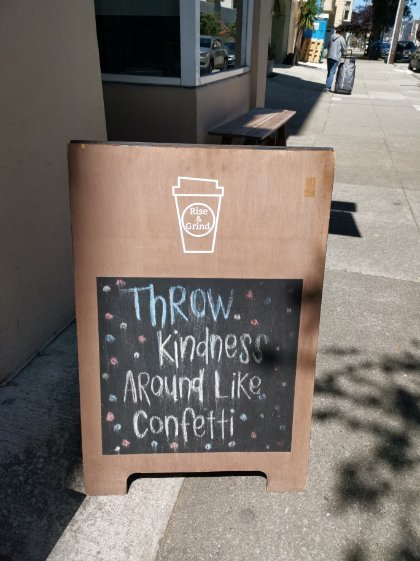 Rise
&
Grind
THROW
Kindness
AROUND LIKE
Confetti